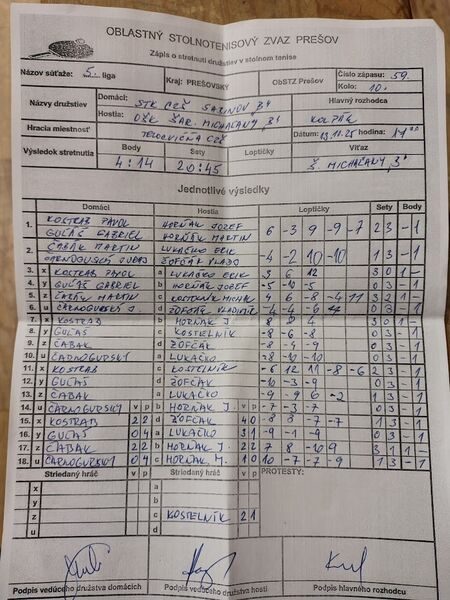 OBLASTNÝ STOLNOTENISOVÝ ZVAZ PREŠOV
Zápis o stretnutí družstiev v stolnom tenise
Názov súťaže: 5. liga Kraj: PREŠOVSKÝ ObSTZ Prešov Číslo zápasu: 59.
Kolo: 10.
Názvy družstiev Domáci: STK CZŠ SABINOV "B" Hlavný rozhodca
Hostia: OŠK ŠAR. MICHAĽANY "B" KOLPÁK
Hracia miestnosť TELOCVIČŇA CZŠ Dátum: 13.11.25 hodina:
Výsledok stretnutia Body Sety Loptičky Víťaz
4:14 20:45 Š. MICHAĽANY "B"
Jednotlivé výsledky
Domáci Hostia Loptičky Sety Body
1. KOSTRAB PAVOL HORŇÁK JOZEF 6 -3 9 -9 -7 2 3 - 1
GULÁŠ GABRIEL HORŇÁK MARTIN
2. ČABÁK MARTIN LUKAČKO ERIK -4 -2 10 -10 1 3 - 1
ČARNOGURSKÝ ŽOFČÁK
3. x KOSTRAB PAVOL b LUKAČKO ERIK 3 6 12 3 0 1 -
4. y GULÁŠ GABRIEL a HORŇÁK JOZEF -5 -10 -5 0 3 - 1
5. z ČABÁK MARTIN c KOSTELNÍK MICHAL 4 6 -8 -4 11 3 2 1 -
6. u ČARNOGURSKÝ J. d ŽOFČÁK VLADIMÍR -4 -4 -6
7. x KOSTRAB a HORŇÁK J. 8 8 4 3 0 1 -
8. y GULÁŠ c KOSTELNÍK -8 -6 -8 0 3 - 1
9. z ČABÁK d ŽOFČÁK -4 -8 -9 0 3 - 1
10. u ČARNOGURSKÝ b LUKAČKO -8 -10 -10 0 3 - 1
11. x KOSTRAB c KOSTELNÍK -6 12 11 -8 -6 2 3 - 1
12. y GULÁŠ d ŽOFČÁK -10 -3 -9 0 3 - 1
13. z ČABÁK a LUKAČKO -9 -9 6 -2 1 3 - 1
14. u ČARNOGURSKÝ v p b HORŇÁK J. v p -7 -3 -7 0 3 - 1
15. x KOSTRAB 2 2 d ŽOFČÁK 4 0 -8 8 -7 -7 1 3 - 1
16. y GULÁŠ 0 4 b LUKAČKO 3 1 -9 -1 -9 0 3 - 1
17. z ČABÁK 2 2 a HORŇÁK J. 2 2 7 8 -10 9 3 1 1 -
18. u ČARNOGURSKÝ 0 4 c HORŇÁK M. 1 0 10 -7 -7 -9 1 3 - 1
Striedaný hráč v p Striedaný hráč v p PROTESTY:
x a
y b
z c KOSTELNÍK 2 1
u d
Podpis vedúceho družstva domácich Podpis vedúceho družstva hostí Podpis hlavného rozhodcu